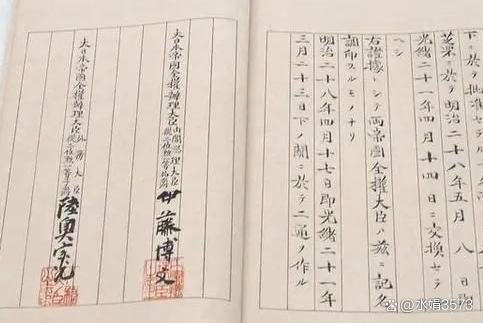 下ニ於テ批准セ
芝罘ニ於テ明治二十八年五月八日
光緒二十一年四月十四日ニ交換セラ
ヘシ
右證據トシテ兩帝國全權大臣ハ茲ニ記名
調印スルモノナリ
明治二十八年四月十七日即光緒二十一年
三月二十三日下ノ關ニ於テ二通ヲ作ル
大日本帝國全權辦理大臣內閣總理大臣從二位勳一等伯爵伊藤博文
大日本帝國全權辦理大臣外務大臣從二位勳一等子爵陸奥宗光
水娟3573